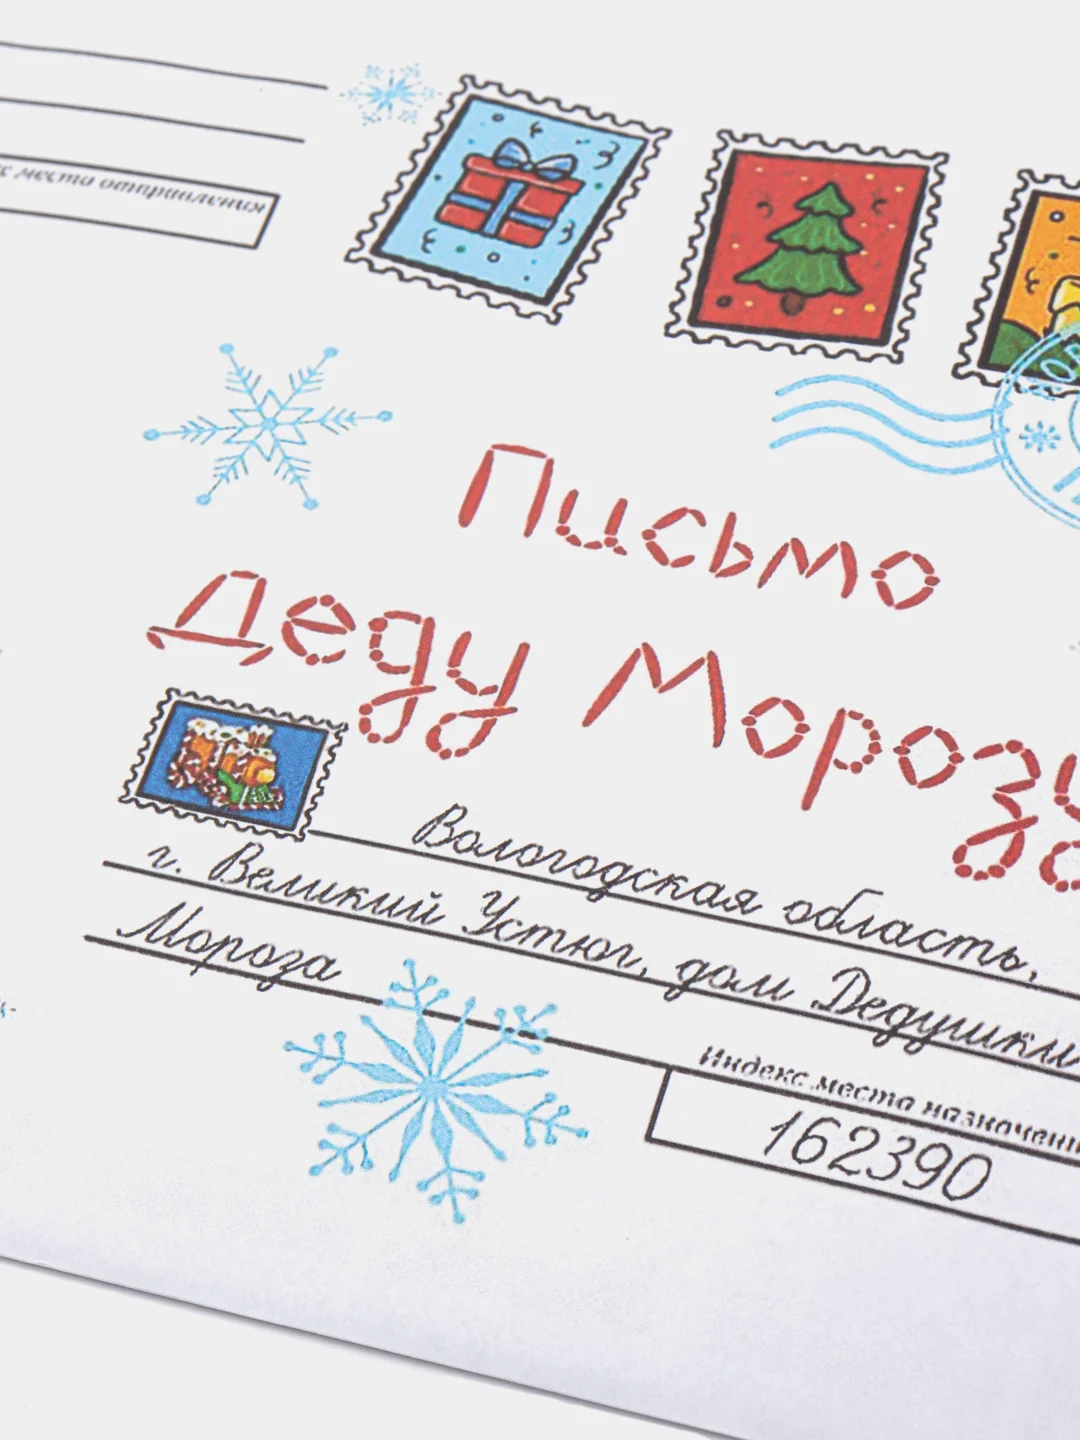 места отправления
Письмо
Деду Морозу
Вологодская область,
г. Великий Устюг, дом Дедушки
Мороза
Индекс места
162390